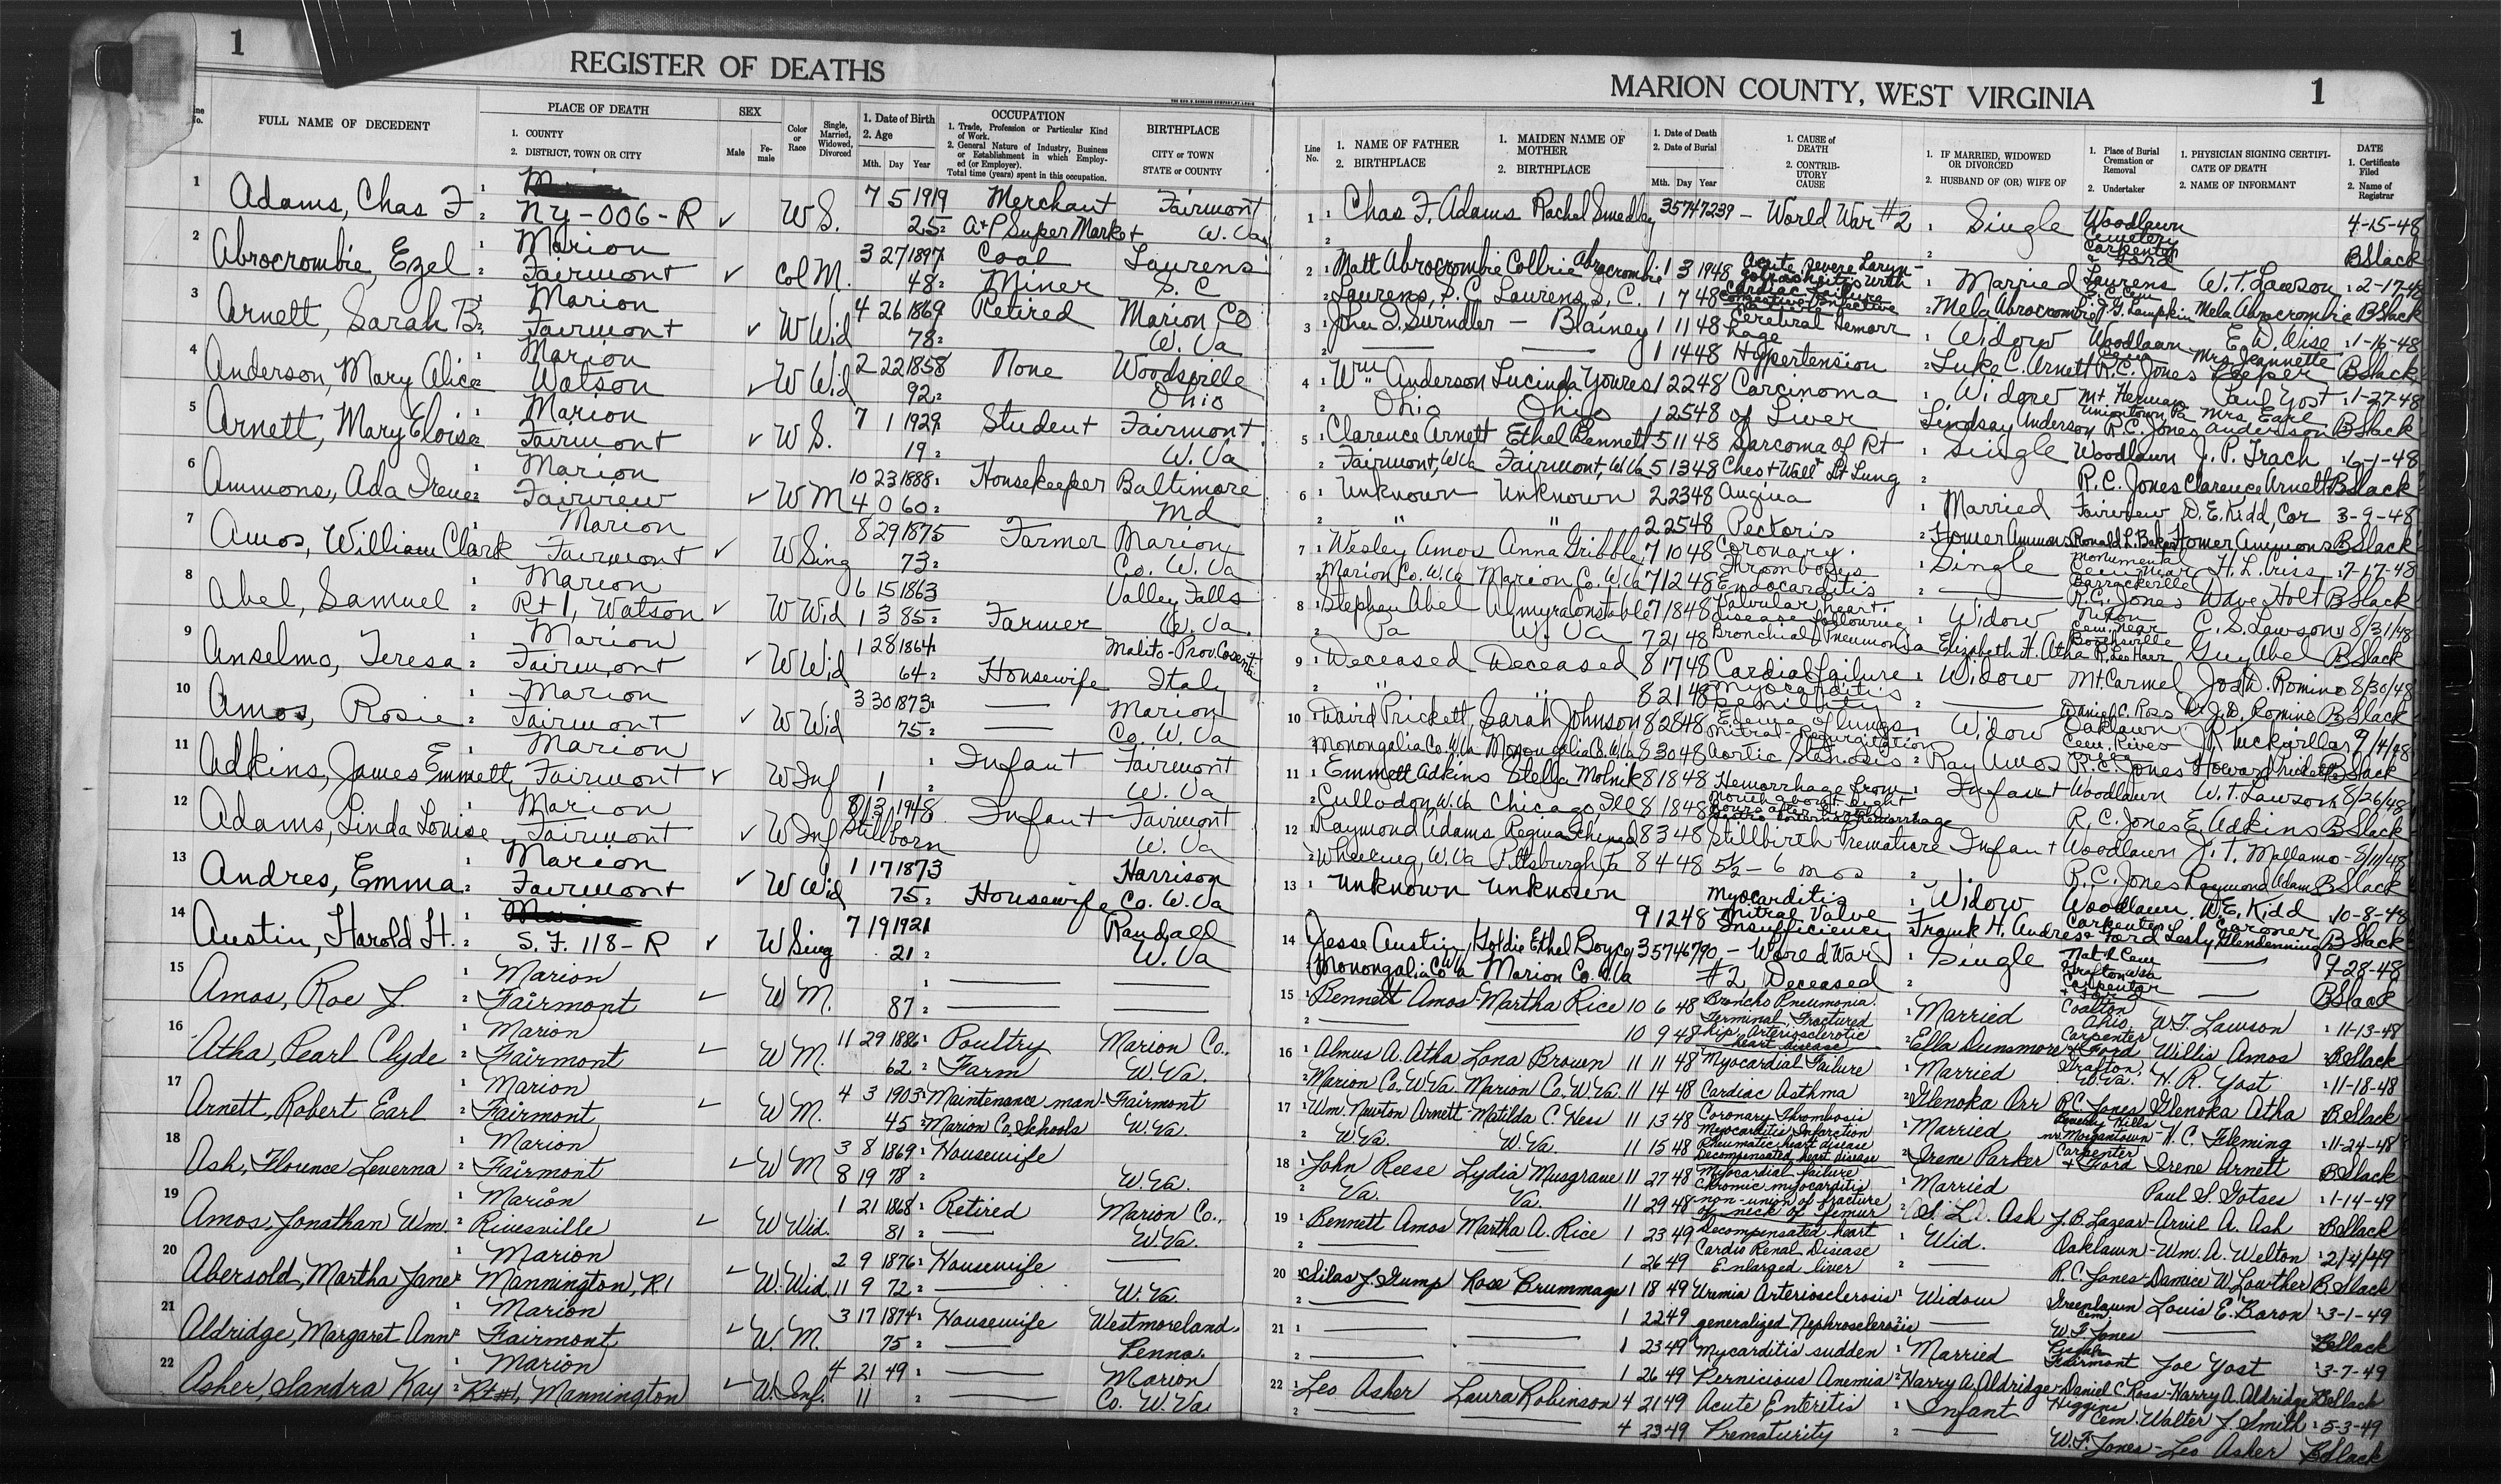 1
REGISTER OF DEATHS
MARION COUNTY, WEST VIRGINIA
1
Line No.
FULL NAME OF DECEDENT
PLACE OF DEATH
1. COUNTY
2. DISTRICT, TOWN OR CITY
SEX
Male
Female
Color or Race
Single, Married, Widowed, Divorced
1. Date of Birth
2. Age
Mth. Day Year
OCCUPATION
1. Trade, Profession or Particular Kind of Work.
2. General Nature of Industry, Business or Establishment in which Employed (or Employer).
Total time (years) spent in this occupation.
BIRTHPLACE
CITY or TOWN
STATE or COUNTY
Line No.
1. NAME OF FATHER
2. BIRTHPLACE
1. MAIDEN NAME OF MOTHER
2. BIRTHPLACE
1. Date of Death
2. Date of Burial
Mth. Day Year
1. CAUSE of DEATH
2. CONTRIBUTORY CAUSE
1. IF MARRIED, WIDOWED OR DIVORCED
2. HUSBAND OF (OR) WIFE OF
1. Place of Burial Cremation or Removal
2. Undertaker
1. PHYSICIAN SIGNING CERTIFICATE OF DEATH
2. NAME OF INFORMANT
DATE
1. Certificate Filed
2. Name of Registrar
1 Adams, Chas F 1 2 NY-006-R ✓ W S. 7 5 1919 Merchant Fairmont
25 2 A+P Super Market W. Va.
2 Abrocrombie, Ezel 1 Marion 2 Fairmont ✓ Col M. 3 27 1897 Coal Laurens
48 2 Miner S. C
3 Arnett, Sarah B. 1 Marion 2 Fairmont ✓ W Wid 4 26 1869 Retired Marion Co
78 2 W. Va
4 Anderson, Mary Alice 1 Marion 2 Watson ✓ W Wid 2 22 1858 None Woodsville
92 2 Ohio
5 Arnett, Mary Eloise 1 Marion 2 Fairmont ✓ W S. 7 1 1929 Student Fairmont
19 2 W. Va
6 Ammons, Ada Irene 1 Marion 2 Fairview ✓ W M 10 23 1888 1 Housekeeper Baltimore
4 0 60 2 Md
7 Amos, William Clark 1 Marion Fairmont ✓ W Sing 8 29 1875 Farmer Marion
73 2 Co. W. Va
8 Abel, Samuel 1 Marion 2 Rt 1, Watson ✓ W Wid 6 15 1863 Valley Falls
1 3 85 2 Farmer W. Va.
9 Anselmo, Teresa 1 Marion 2 Fairmont ✓ W Wid 1 28 1864 Malito-Prov. Cosentia
64 2 Housewife Italy
10 Amos, Rosie 1 Marion 2 Fairmont ✓ W Wid 3 30 1873 Marion
75 2 Co. W. Va
11 Adkins, James Emmett 1 Marion Fairmont ✓ W Inf 1 1 Infant Fairmont
2 W. Va
12 Adams, Linda Louise 1 Marion Fairmont ✓ W Inf 8 3 1948 Infant Fairmont
Stillborn W. Va
13 Andres, Emma 1 Marion 2 Fairmont ✓ W Wid 1 17 1873 Harrison
75 2 Housewife Co. W. Va
14 Austin, Harold H. 1 2 S. F. 118-R ✓ W Sing 7 19 1921 Randall
21 2 W. Va
15 Amos, Roe J. 1 Marion 2 Fairmont ✓ W M. 1
87 2
16 Atha, Pearl Clyde 1 Marion 2 Fairmont ✓ W M. 11 29 1886 1 Poultry Marion Co.,
62 2 Farm W. Va.
17 Arnett, Robert Earl 1 Marion 2 Fairmont ✓ W M. 4 3 1903 1 Maintenance man Fairmont
45 2 Marion Co. Schools W. Va.
18 Ash, Florence Leverna 1 Marion 2 Fairmont ✓ W M 3 8 1869 1 Housewife
8 19 78 2 W. Va.
19 Amos, Jonathan Wm. 1 Marion 2 Rivesville ✓ W Wid. 1 21 1868 1 Retired Marion Co.,
81 2 W. Va.
20 Abersold, Martha Jane 1 Marion 2 Mannington, R1 ✓ W. Wid. 2 9 1876 1 Housewife
11 9 72 2 W. Va.
21 Aldridge, Margaret Ann 1 Marion 2 Fairmont ✓ W. M. 3 17 1874 1 Housewife Westmoreland,
75 2 Penna.
22 Asher, Sandra Kay 1 Marion 2 Rt #1, Mannington ✓ W. Inf. 4 21 49 1 Marion
11 2 Co. W. Va
1 1 Chas F. Adams Rachel Smedley 35747239 - World War #2 1 Single Woodlawn Cemetery 4-15-48
2 2 Carpenter & Ford B Slack
2 1 Matt Abrocrombie Collrie Abrocrombie 1 3 1948 Acute, severe Laryn- with Cardiac Failure 1 Married Laurens W. T. Lawson 1 2-17-48
2 Laurens, S. C. Laurens, S. C. 1 7 48 2 Mela Abrocrombie J. G. Lampkin Mela Abrocrombie B Slack
3 1 John T. Swindler - Blainey 1 11 48 Cerebral Hemorrhage 1 Widow Woodlawn Cem E. D. Wise 1 1-16-48
2 1 14 48 Hypertension 2 Luke C. Arnett R. C. Jones Mrs Jeannette Leeper B Slack
4 1 Wm Anderson Lucinda Youres 1 22 48 Carcinoma 1 Widow Mt. Herman Uniontown, Pa Paul Yost 1 1-27-48
2 Ohio Ohio 1 25 48 of Liver Lindsay Anderson R. C. Jones Mrs Earl Anderson B Slack
5 1 Clarence Arnett Ethel Bennett 5 11 48 Sarcoma of Rt 1 Single Woodlawn J. P. Trach 1 6-1-48
2 Fairmont, W Va Fairmont, W. Va 5 13 48 Chest Wall + Lt Lung 2 R. C. Jones Clarence Arnett B Slack
6 1 Unknown Unknown 2 23 48 Angina 1 Married Fairview D. E. Kidd, Cor 3-9-48
2 " " 2 25 48 Pectoris 2 Homer Ammons Ronald L. Baker Homer Ammons B Slack
7 1 Wesley Amos Anna Gribble 7 10 48 Coronary Thrombosis 1 Single Monumental Cem Near Barrackville H. L. Criss 1 7-17-48
2 Marion Co. W. Va Marion Co. W. Va 7 12 48 Endocarditis 2 R. C. Jones Wave Holt B Slack
8 1 Stephen Abel Almyra Constable 7 18 48 Valvular heart disease following 1 Widow Nixon Cem. near Boothsville C. S. Lawson 8/31/48
2 Pa W. Va 7 21 48 Bronchial Pneumonia Elizabeth H. Atha R. Leo Harr Guy Abel B Slack
9 1 Deceased Deceased 8 17 48 Cardial failure 1 Widow Mt. Carmel Jos D. Romino 8/30/48
2 " " 8 21 48 Myocarditis Senility 2 Daniel C. Ross Dr. J. D. Romino B Slack
10 1 David Prickett Sarah Johnson 8 28 48 Edema of lungs Mitral-Regurgitation 1 Widow Oaklawn Cem. J. R. Tuckwiller 9/4/48
2 Monongalia Co. W. Va Monongalia Co. W. Va 8 30 48 Aortic Stenosis 2 Ray Amos R. C. Jones Howard Prickett B Slack
11 1 Emmett Adkins Stella Molnik 8 18 48 Hemorrhage from mouth about eight hours after birth 1 Infant Woodlawn W. T. Lawson 8/26/48
2 Cullodon, W. Va Chicago, Ill 8 18 48 Gastro Hemorrhage R. C. Jones E. Adkins B Slack
12 1 Raymond Adams Regina 8 3 48 Stillbirth Premature Infant Woodlawn J. T. Mallamo 8/11/48
2 Wheeling, W. Va Pittsburgh, Pa 8 4 48 5½ - 6 mos 2 R. C. Jones Raymond Adams B Slack
13 1 Unknown Unknown Myocarditis 1 Widow Woodlawn D. E. Kidd 10-8-48
9 12 48 Mitral Valve Insufficiency 2 Frank H. Andres Carpenter & Ford Coroner Lesly Glendenning B Slack
14 1 Jesse Austin Goldie Ethel Boyce 35746790 - World War 1 Single Nat'l Cem Grafton W Va 9-28-48
2 Monongalia Co Marion Co. W Va #2, Deceased 2 Carpenter & Ford B Slack
15 1 Bennett Amos Martha Rice 10 6 48 Broncho Pneumonia, Terminal, Fractured 1 Married Coalton Ohio W. T. Lawson 1 11-13-48
2 10 9 48 hip, Arteriosclerotic heart disease 2 Ella Dunsmore Carpenter & Ford Willis Amos 2 B Slack
16 1 Almus A. Atha Lona Brown 11 11 48 Myocardial Failure 1 Married Grafton, W. Va. H. R. Yost 1 11-18-48
2 Marion Co. W. Va. Marion Co. W. Va. 11 14 48 Cardiac Asthma 2 Glenoka Orr R. C. Jones Glenoka Atha B Slack
17 1 Wm. Newton Arnett Matilda C. Hess 11 13 48 Coronary Thrombosis Myocarditis Infarction 1 Married Beverly Hills nr Morgantown H. C. Fleming 1 11-24-48
2 W. Va. W. Va. 11 15 48 Rheumatic heart disease Decompensated heart disease 2 Irene Parker Carpenter & Ford Irene Arnett B Slack
18 1 John Reese Lydia Musgrave 11 27 48 Myocardial failure Chronic myocarditis 1 Married Paul S. Gotses 1 1-14-49
2 Va. Va. 11 29 48 non-union of fracture of neck of femur 2 Ash J. B. Lazear Arvil A. Ash 2 B Slack
19 1 Bennett Amos Martha A. Rice 1 23 49 Decompensated heart Cardio Renal Disease 1 Wid. Oaklawn Wm. A. Welton 1 2/4/49
2 1 26 49 Enlarged liver 2 R. C. Jones Damice W. Lowther B Slack
20 1 Silas J. Gump Rose Brummage 1 18 49 Uremia Arteriosclerosis 1 Widow Greenlawn Cem. Louis E. Baron 1 3-1-49
2 1 22 49 generalized Nephrosclerosis W. F. Jones B Slack
21 1 1 23 49 Mycarditis sudden 1 Married Fairmont Joe Yost 1 3-7-49
2 1 26 49 Pernicious Anemia 2 Harry A. Aldridge Daniel C. Ross Harry A. Aldridge B Slack
22 1 Leo Asher Laura Robinson 4 21 49 Acute Enteritis 1 Infant Higgins Cem. Walter J. Smith 1 5-3-49
2 4 23 49 Prematurity 2 W. F. Jones Leo Asher B Slack